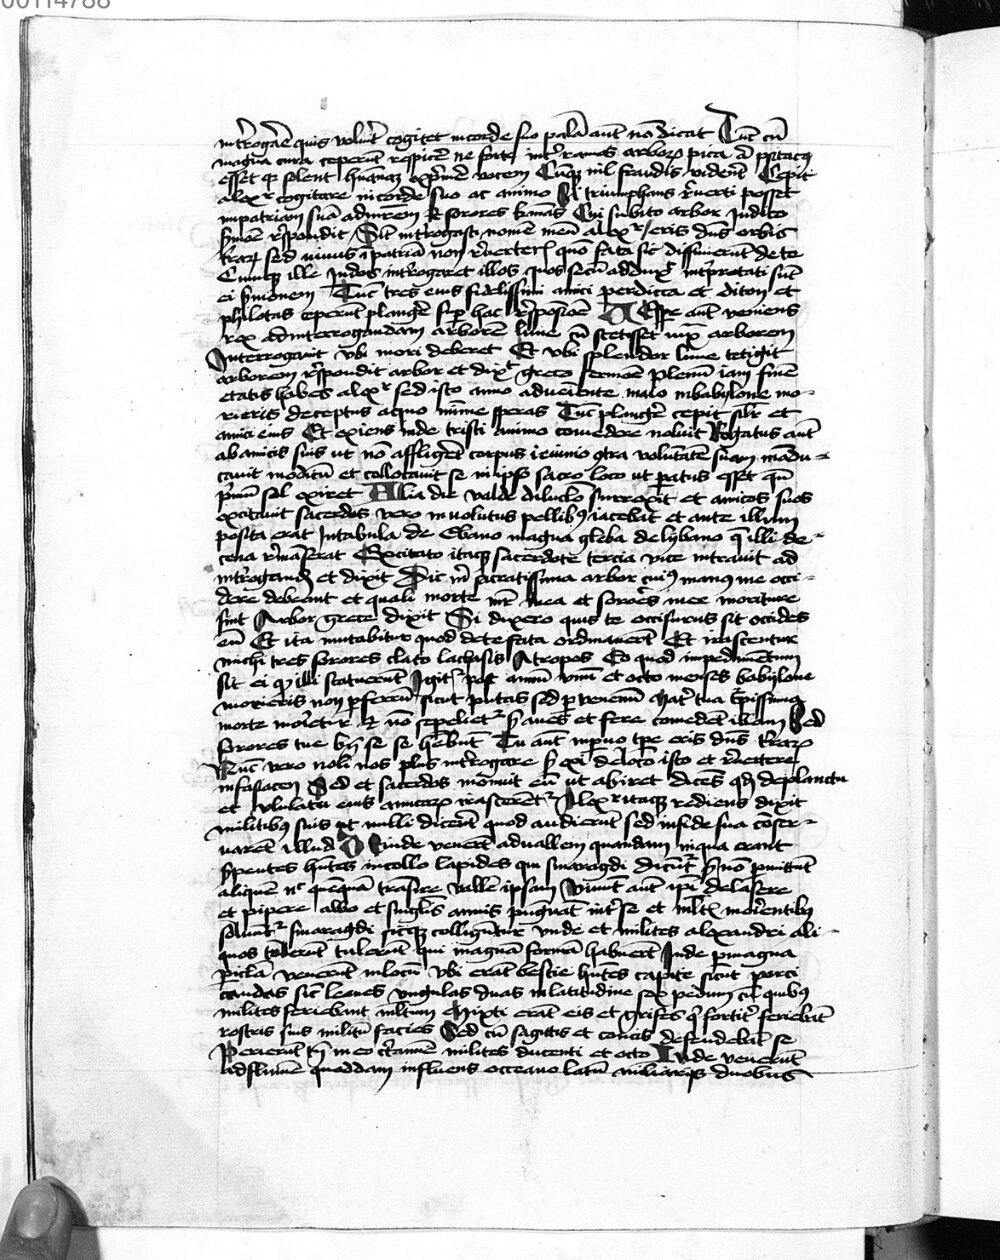 00114788
int'rogare quis voluit cogitet in corde suo palam aut non dicat Tunc cum
magna cura ceperunt respicere ne forte inter ramos arborum pica aut psitacus
esset qui solent humanas exprimere vocem Cumque nil fraudis viderent Cepit
alexr cogitare in corde suo ac animo Si triumphans reverti posset
in patriam suam ad matrem et sorores Cui subito arbor Indico
sermone respondit Sicut interrogasti nomen meum alexr eris dominus orbis
terrarum sed vivus in patriam non reverteris quoniam fata sic diffinierunt de te
Cumque ille Indos interrogaret illos quos secum adduxit interpretati sunt
ei sermonem Tunc tres eius fidelissimi amici perdicca et diton et
philotas ceperunt plangere super hac responsione Vespere autem veniens
rex ad interrogandam arborem lune cum stetisset iuxta arborem
Interrogavit ubi mori deberet Et ubi splendor lune tetigit
arborem respondit arbor et dixit greco sermone plenum iam finem
etatis habes alexr sed isto anno adveniente maio in babylone mo-
rieris deceptus a quo minime speras Tunc plangere cepit similiter et
amici eius Et exiens inde tristi animo comedere noluit Rogatus autem
ab amicis suis ut non affligeret corpus ieiunio contra voluntatem suam mandu-
cavit modicum et collocavit se in ipso sacro loco ut paratus esset cum
primum sol exiret Alia die valde diluculo surrexit et amicos suos
excitavit sacerdos vero involutus pellibus iacebat et ante illum
posita erat in tabula de Ebano magna gleba de lybano que illi de
cena remanserat Excitato itaque sacerdote tercia vice intravit ad
interrogandum et dixit Dic michi sacratissima arbor cuius manus me occi-
dere debeant et quali morte mater mea et sorores mee moriture
sint Arbor grece dixit Si dixero quis te occisurus sit occides
eum Et ita mutabitur quod de te fata ordinaverunt Et irascentur
michi tres sorores clato lachesis Atropos Eo quod impedimentum
sit ei quod illi statuerunt Igitur post annum unum et octo menses babylone
morieris non per ferrum sicut putas sed per venenum Mater tua turpissima
morte morietur et non sepelietur sed aves et fere comedent illam Sed
sorores tue bene se habebunt Tu autem in parvo tempore eris dominus terrarum
Nunc vero noli nos plus interrogare sed exi de loco isto et revertere
in fasiacen Sed et sacerdos monuit eum ut abiret dicens quod de planctu
et ululatu eius amicorum irascerentur Alexr itaque rediens dixit
militibus suis ut nulli dicerent quod audierunt sed in fide sua conser-
varent illud Deinde venerunt ad vallem quandam in qua erant
serpentes habentes in collo lapides qui smaragdi dicuntur qui non permittunt
aliquem nec quemquam transire vallem ipsam Vivunt autem ipsi de lasere
et pipere albo et singulis annis pugnant inter se et multis morientibus
smaragdi sicque colliguntur unde et milites alexandri ali-
quos tulerunt qui magnam formam habuerunt Inde per magna
pericla venerunt in locum ubi erant bestie habentes capite sicut porci
caudas sicut leones ungulas duas in latitudine sex pedum cum quibus
milites feriebant multum Mixti erant eis et grifes qui fortiter feriebant
rostris suis militum facies Sed cum sagittis et contis defendebant se
Perierunt tamen in eo certamine milites ducenti et octo Inde venerunt
ad flumen quoddam influens occeano latum miliariis duobus